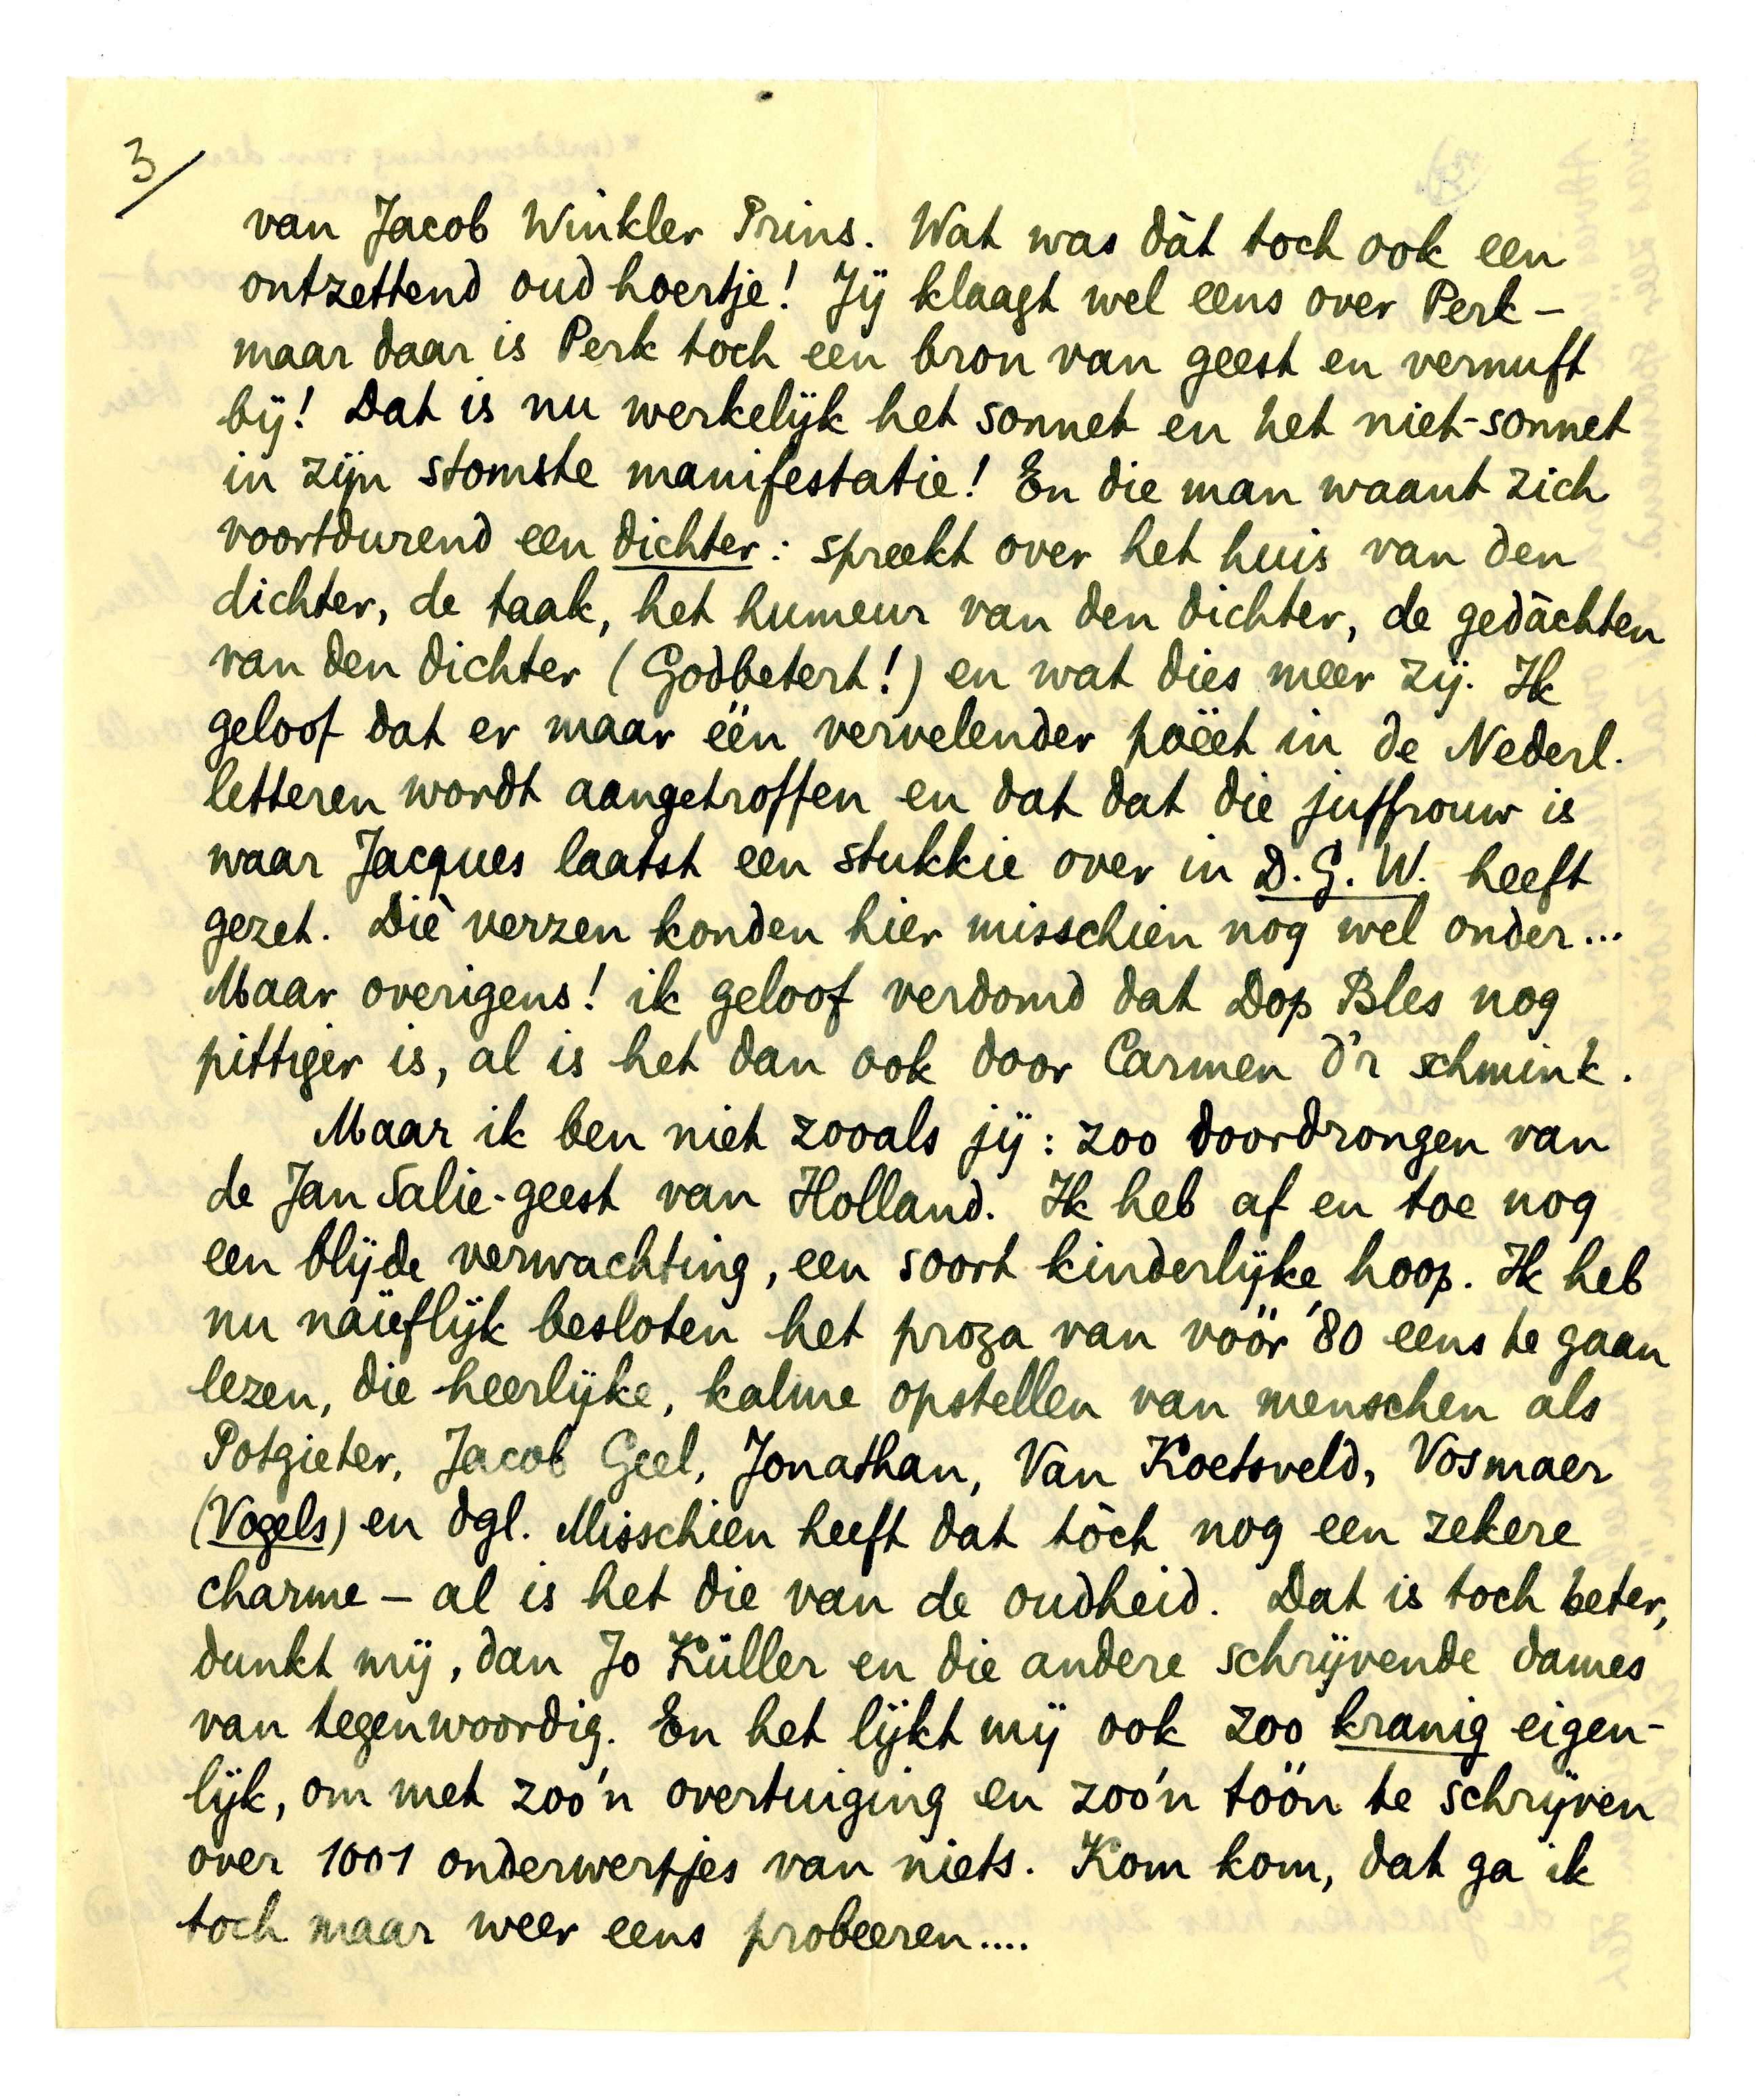 3/
van Jacob Winkler Prins. Wat was dàt toch ook een
ontzettend oud hoertje! Jij klaagt wel eens over Perk –
maar daar is Perk toch een bron van geest en vernuft
bij! Dat is nu werkelijk het sonnet en het niet-sonnet
in zijn stomste manifestatie! En die man waant zich
voortdurend een dichter: spreekt over het huis van den
dichter, de taak, het humeur van den dichter, de gedàchten
van den dichter (Godbetert!) en wat dies meer zij. Ik
geloof dat er maar één vervelender poëet in de Nederl.
letteren wordt aangetroffen en dat dat die juffrouw is
waar Jacques laatst een stukkie over in D.G.W. heeft
gezet. Diè verzen konden hier misschien nog wel onder...
Maar overigens! ik geloof verdomd dat Dop Bles nog
pittiger is, al is het dan ook door Carmen d'r schmink.
Maar ik ben niet zooals jij: zoo doordrongen van
de Jan Salie-geest van Holland. Ik heb af en toe nog
een blijde verwachting, een soort kinderlijke hoop. Ik heb
nu naïeflijk besloten het proza van vóór '80 eens te gaan
lezen, die heerlijke, kalme opstellen van menschen als
Potgieter, Jacob Geel, Jonathan, Van Koetsveld, Vosmaer
(Vogels) en dgl. Misschien heeft dat tòch nog een zekere
charme – al is het die van de oudheid. Dat is toch beter,
dunkt mij, dan Jo Küller en die andere schrijvende dames
van tegenwoordig. En het lijkt mij ook zoo kranig eigen-
lijk, om met zoo'n overtuiging en zoo'n tóón te schrijven
over 1001 onderwerpjes van niets. Kom kom, dat ga ik
toch maar weer eens probeeren....